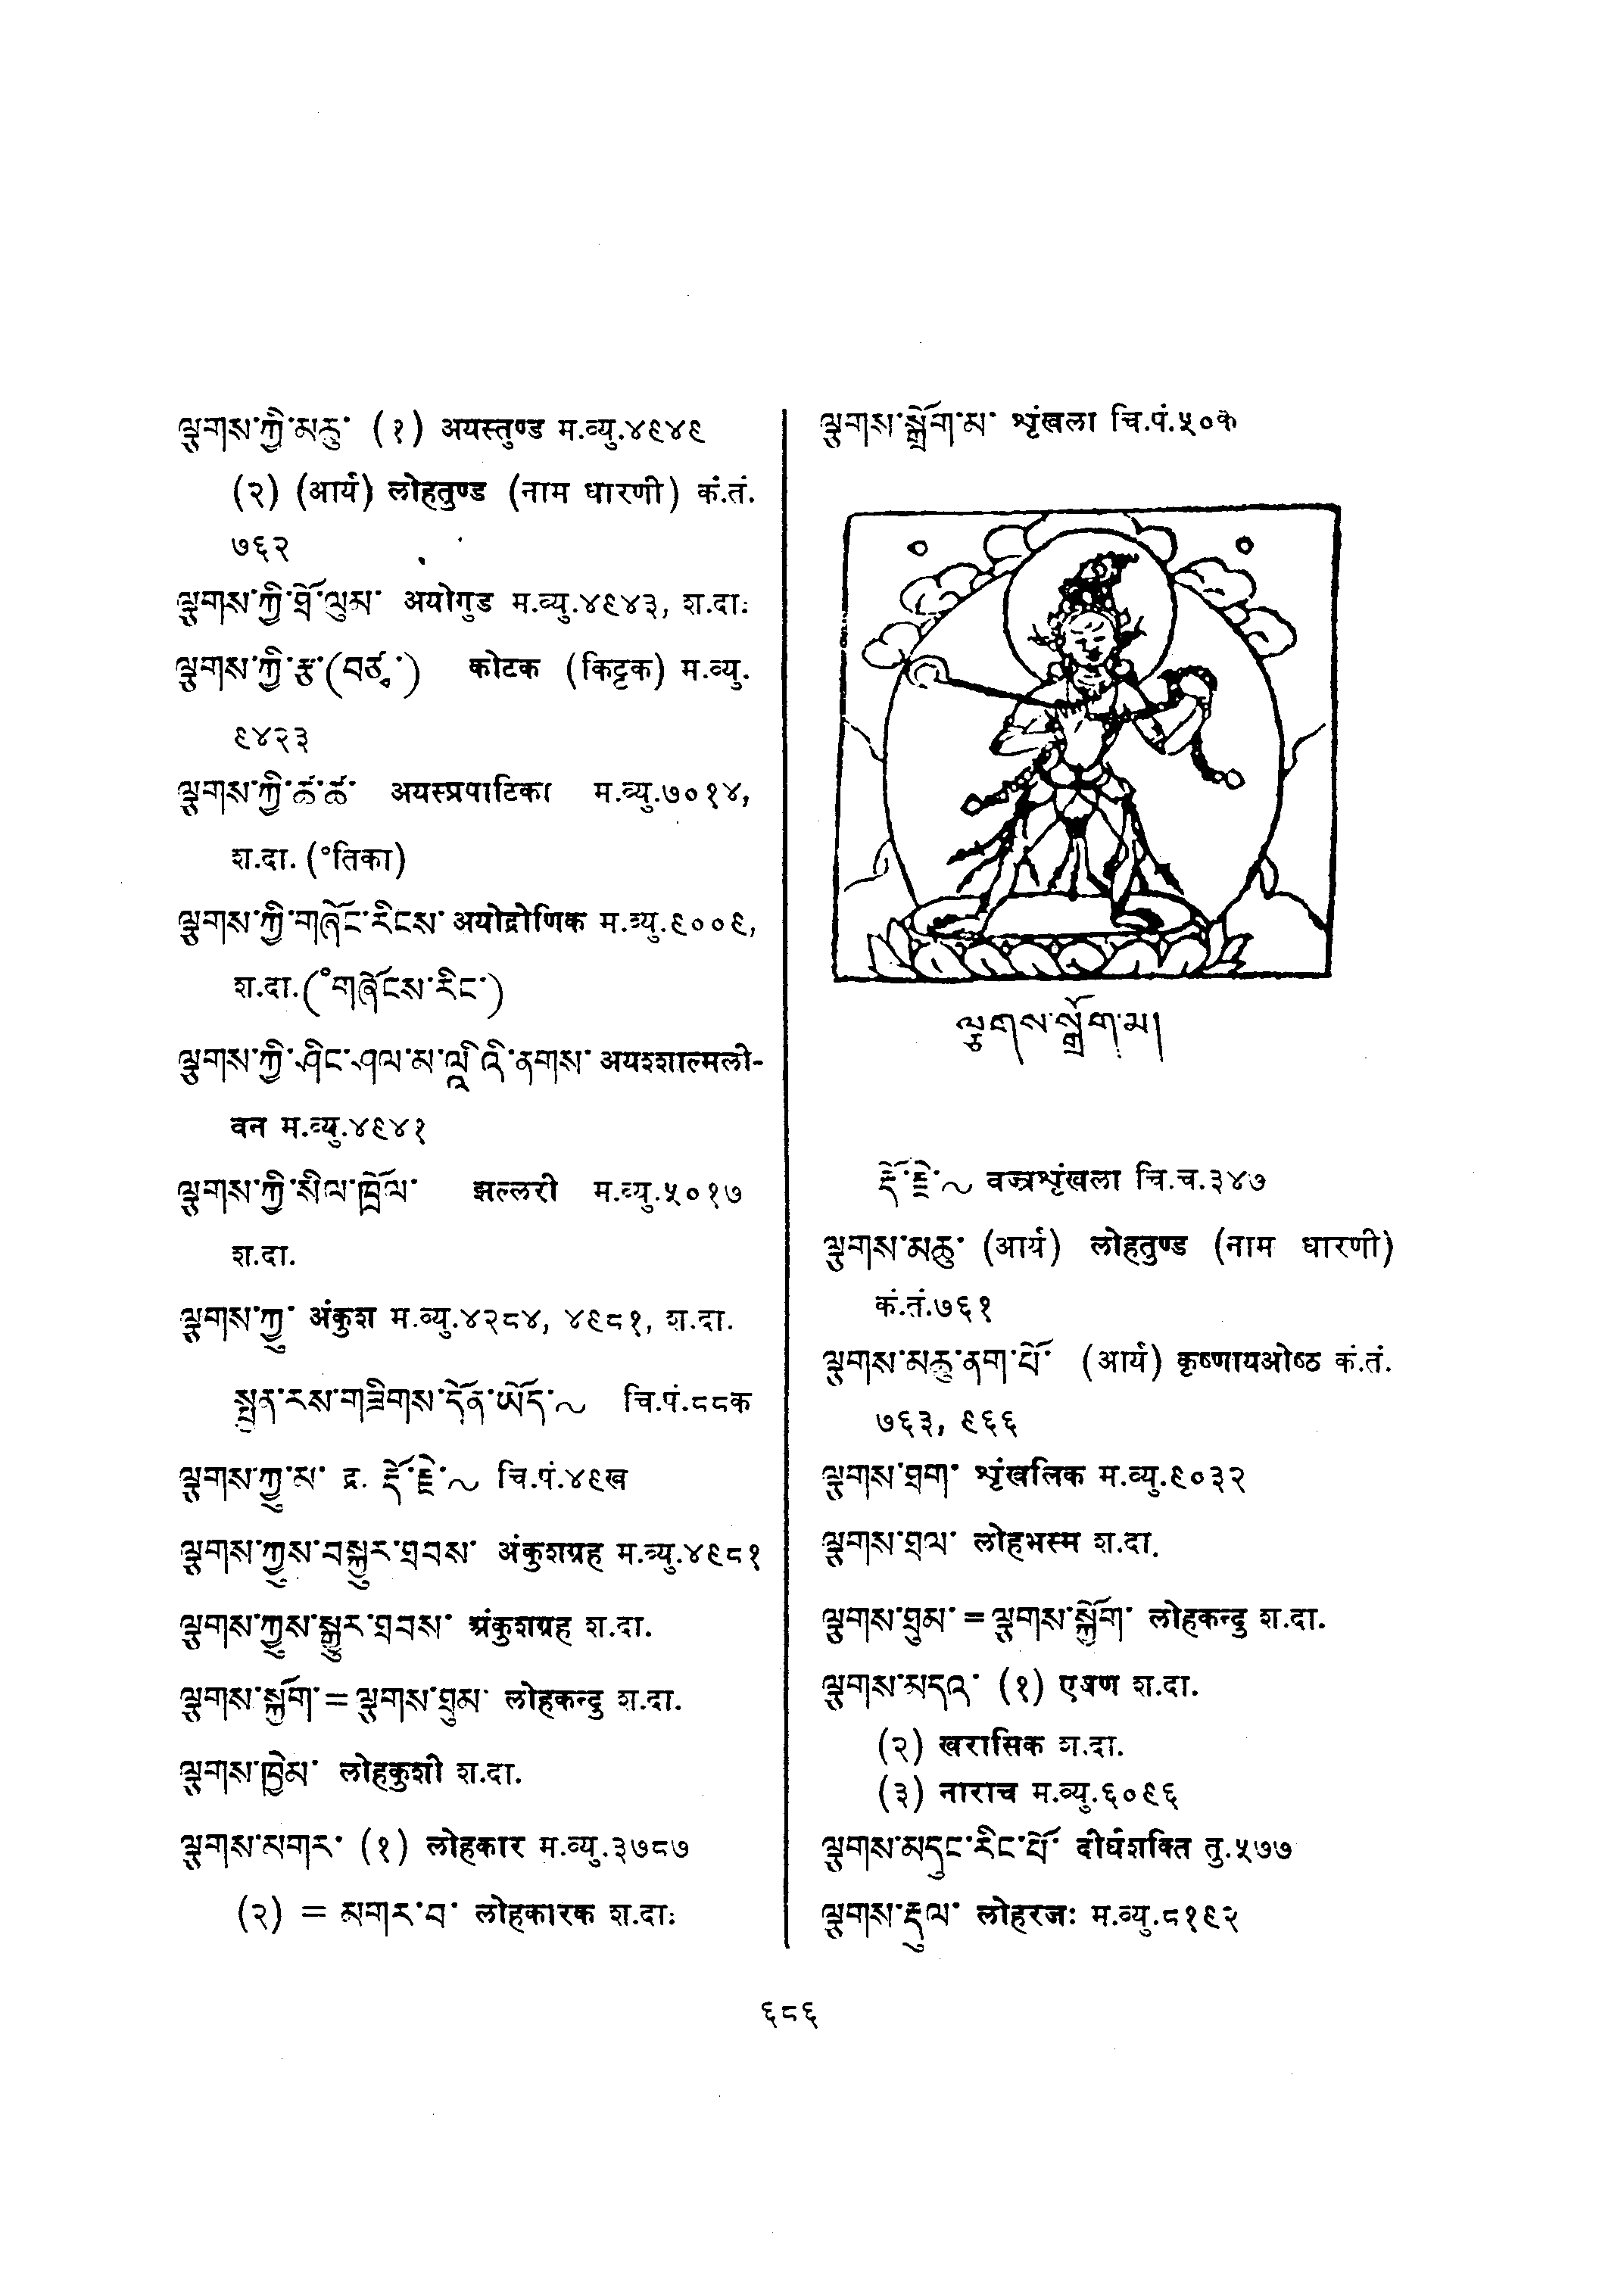 ལྕགས་ཀྱི་མཆུ་ (१) अयस्तुण्ड म.व्यु.४९४९
(२) (आर्य) लोहतुण्ड (नाम धारणी) कं.तं.
७६२
ལྕགས་ཀྱི་ཐོ་ལུམ་ अयोगुड म.व्यु.४९४३, श.दा.
ལྕགས་ཀྱི་རྩྭ་(བཙྭ་) कोटक (किट्टक) म.व्यु.
९४२३
ལྕགས་ཀྱི་ཚ་ཚ་ अयस्प्रपाटिका म.व्यु.७०१४,
श.दा. (°तिका)
ལྕགས་ཀྱི་གཞོང་རིངས་ अयोद्रोणिक म.व्यु.९००९,
श.दा.(°གཞོངས་རིང་)
ལྕགས་ཀྱི་ཤིང་ཤལ་མ་ལཱིའི་ནགས་ अयश्शाल्मली-
वन म.व्यु.४९४१
ལྕགས་ཀྱི་སིལ་ཁྲོལ་ झल्लरी म.व्यु.५०१७
श.दा.
ལྕགས་ཀྱུ་ अंकुश म.व्यु.४२८४, ४९८१, श.दा.
སྤྱན་རས་གཟིགས་དོན་ཡོད་~ चि.पं.८८क
ལྕགས་ཀྱུ་མ་ द्र. རྡོ་རྗེ་~ चि.पं.४९ख
ལྕགས་ཀྱུས་བསྐྱུར་ཐབས་ अंकुशग्रह म.व्यु.४९८१
ལྕགས་ཀྱུས་སྒྱུར་ཐབས་ अंकुशग्रह श.दा.
ལྕགས་སྐྱོག་=ལྕགས་ཐུམ་ लोहकन्दु श.दा.
ལྕགས་ཁྱེམ་ लोहकुशी श.दा.
ལྕགས་མགར་ (१) लोहकार म.व्यु.३७८७
(२) = མགར་བ་ लोहकारक श.दा.
ལྕགས་སྒྲོག་མ་ शृंखला चि.पं.५०क
ལྕགས་སྒྲོག་མ།
རྡོ་རྗེ་~ वज्रशृंखला चि.च.३४७
ལྕགས་མཆུ་ (आर्य) लोहतुण्ड (नाम धारणी)
कं.तं.७६१
ལྕགས་མཆུ་ནག་པོ་ (आर्य) कृष्णायओष्ठ कं.तं.
७६३, ९६६
ལྕགས་ཐག་ शृंखलिक म.व्यु.९०३२
ལྕགས་ཐལ་ लोहभस्म श.दा.
ལྕགས་ཐུམ་=ལྕགས་སྐྱོག་ लोहकन्दु श.दा.
ལྕགས་མདའ་ (१) एषण श.दा.
(२) खरासिक श.दा.
(३) नाराच म.व्यु.६०९६
ལྕགས་མདུང་རིང་པོ་ दीर्घशक्ति तु.५७७
ལྕགས་རྡུལ་ लोहरजः म.व्यु.८१९२
६८६